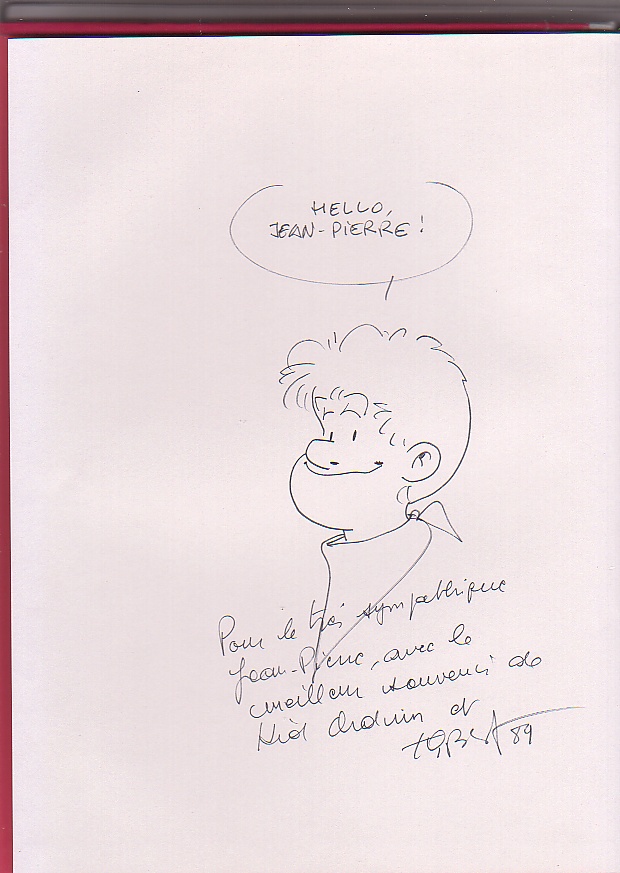 HELLO,
JEAN-PIERRE !
Pour le très sympathique
Jean-Pierre, avec le
meilleur souvenir de
Kid Ordinn et
89